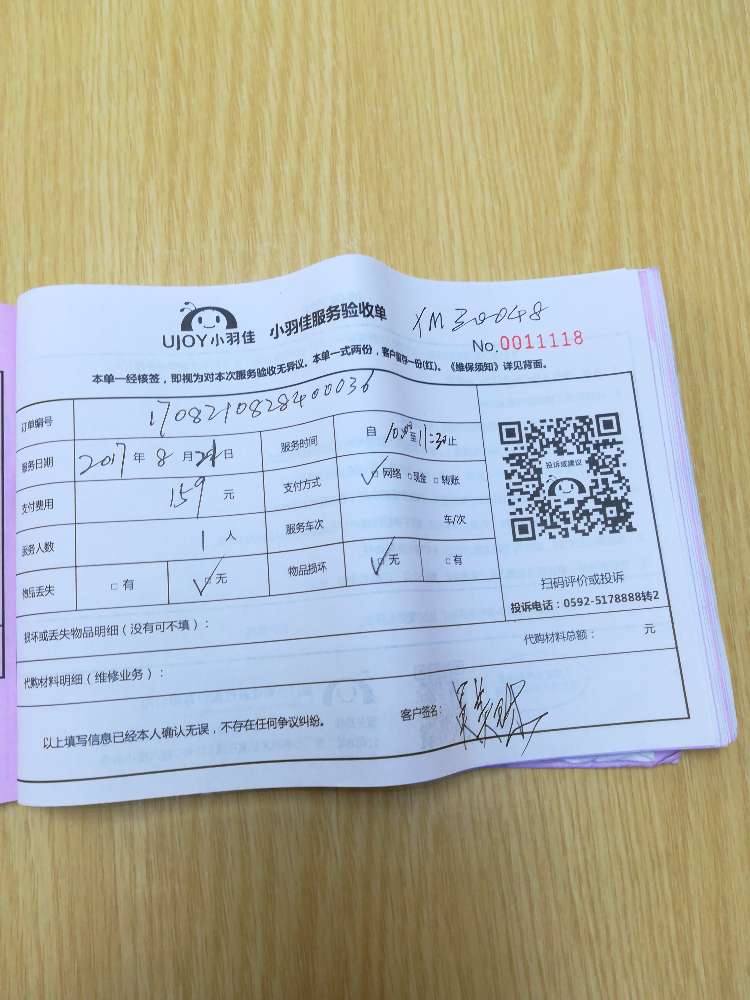 UJOY小羽佳 小羽佳服务验收单 XM30048
No.0011118
本单一经核签，即视为对本次服务验收无异议。本单一式两份，客户留存一份(红)。《维保须知》详见背面。
订单编号 1708210828400036
服务日期 2017年8月21日 服务时间 自10:00至11:30止
支付费用 159元 支付方式 ✓□网络 □现金 □转账
服务人数 1人 服务车次 车/次
物品丢失 □有 ✓□无 物品损坏 ✓□无 □有
投诉或建议
扫码评价或投诉
投诉电话：0592-5178888转2
损坏或丢失物品明细（没有可不填）：
代购材料明细（维修业务）： 代购材料总额： 元
以上填写信息已经本人确认无误，不存在任何争议纠纷。 客户签名：